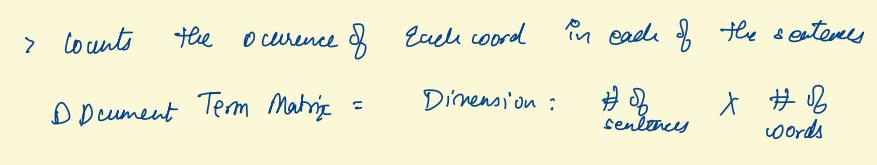 > Counts the ocurence of Each word in each of the sentences
D Dcument Term Matrix = Dimension : # of sentences X # of words